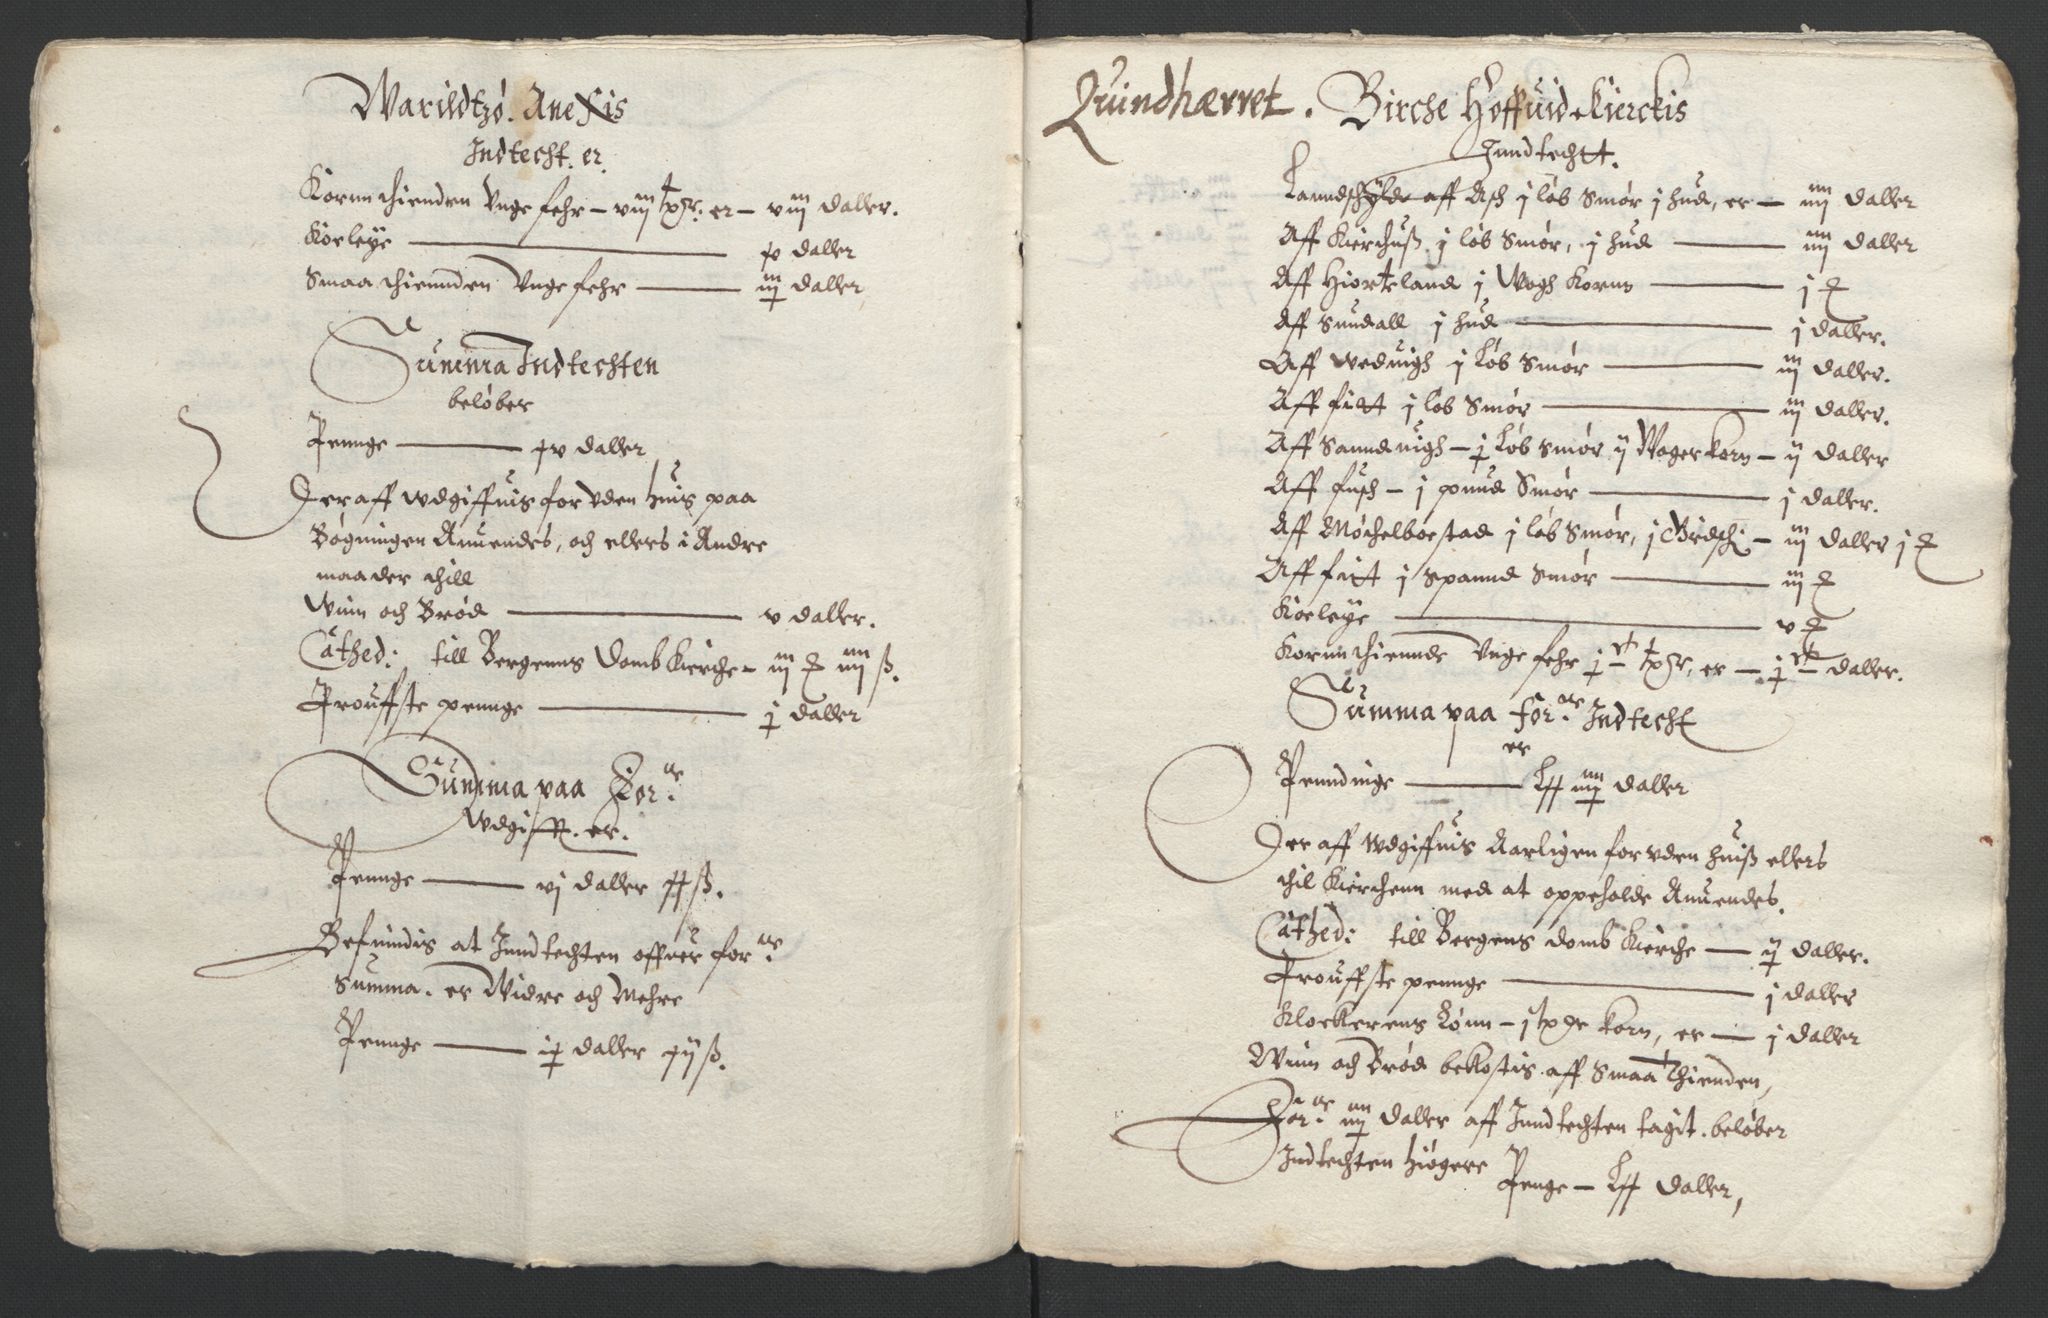 Warildtzó. Anexis
Indtecht. er.
Kornn thienden Unge fehr – viij tdr. er – viij daller.
Korleye x daller
Smaa thiennden Unge fehr iij daller
Summa Indtechten
beløber
Pennge xv daller
Der aff wdgiffuis foruden huis paa
Bøgningen Anuendes, och ellers i Andre
maader thill
Wiin och Brød v daller.
Cathed: till Bergenns domb Kierche – iij ₰ iiij ß.
Prouffste pennge j daller
Summa paa For:ne
Wdgifft. er.
Pennge vj daller xx ß.
Befindis at Inndtechten offuer for:ne
Summa. er Widre och Mehre
Pennge daller xij ß.
Quindhærret. Birche Hoffuid Kierckis
Inndtechtt.
Lanndschylde aff Ask j løb Smør j hud, er – iiij daller
Aff Kierchuß j løb Smør, j hud iiij daller
Aff Hiorteland j Wogh Kornn j ₰
Aff Sundall j hud j daller.
Aff weduigh j Løb Smør iij daller.
Aff fitt j løb Smør iij daller.
Aff Sannduigh – j Løb Smør ij Woger korn – ij daller
Aff fusch – j punnd Smør j daller.
Aff Møchelboestad j løb Smør, j Giedsk: – iij daller j ₰
Aff fitt j Spannd Smør iij ₰
Korleye v ₰
Kornn thiennde Unge fehr j tdr, er – j daller.
Summa paa for:ne Indtecht
er
Penndinge Lxx iiij daller
Der aff wdgiffuis Aarligen foruden huiß ellers
thil Kirchenn med at oppeholde Anuendes.
Cathed: till Bergens domb Kierche – ij daller.
Prouffste pennge j daller
Klockerens Lønn – j tde korn, er – j daller
Wiin och Brød bekostis aff Smaa Thienden,
For:ne iiij daller aff Inndtechten tagit. beløber
Indtechten høgere
Penge – Lxx daller,